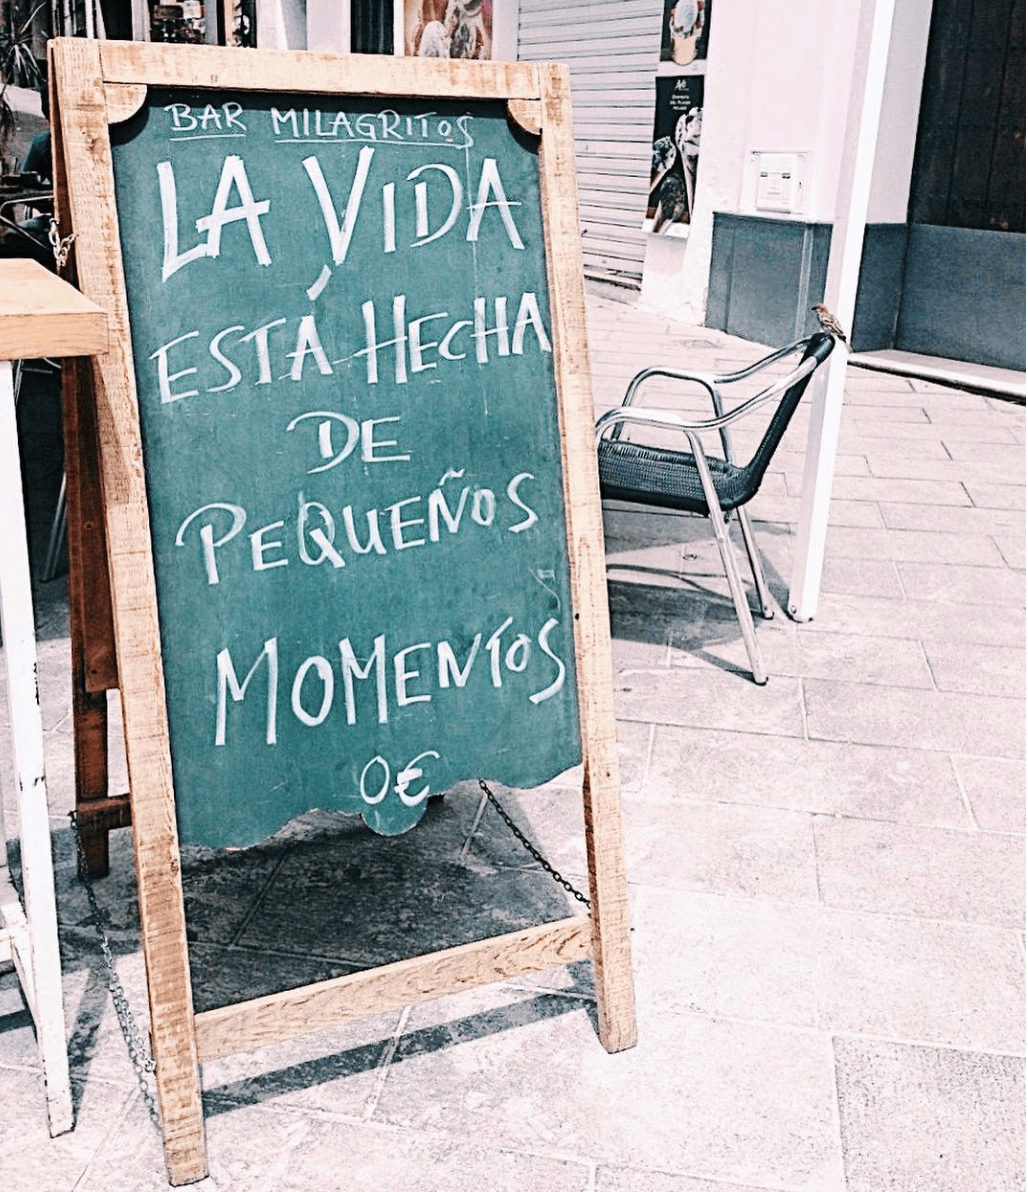 BAR MILAGRITOS
LA VIDA
ESTÁ HECHA
DE
PEQUEÑOS
MOMENTOS
0€